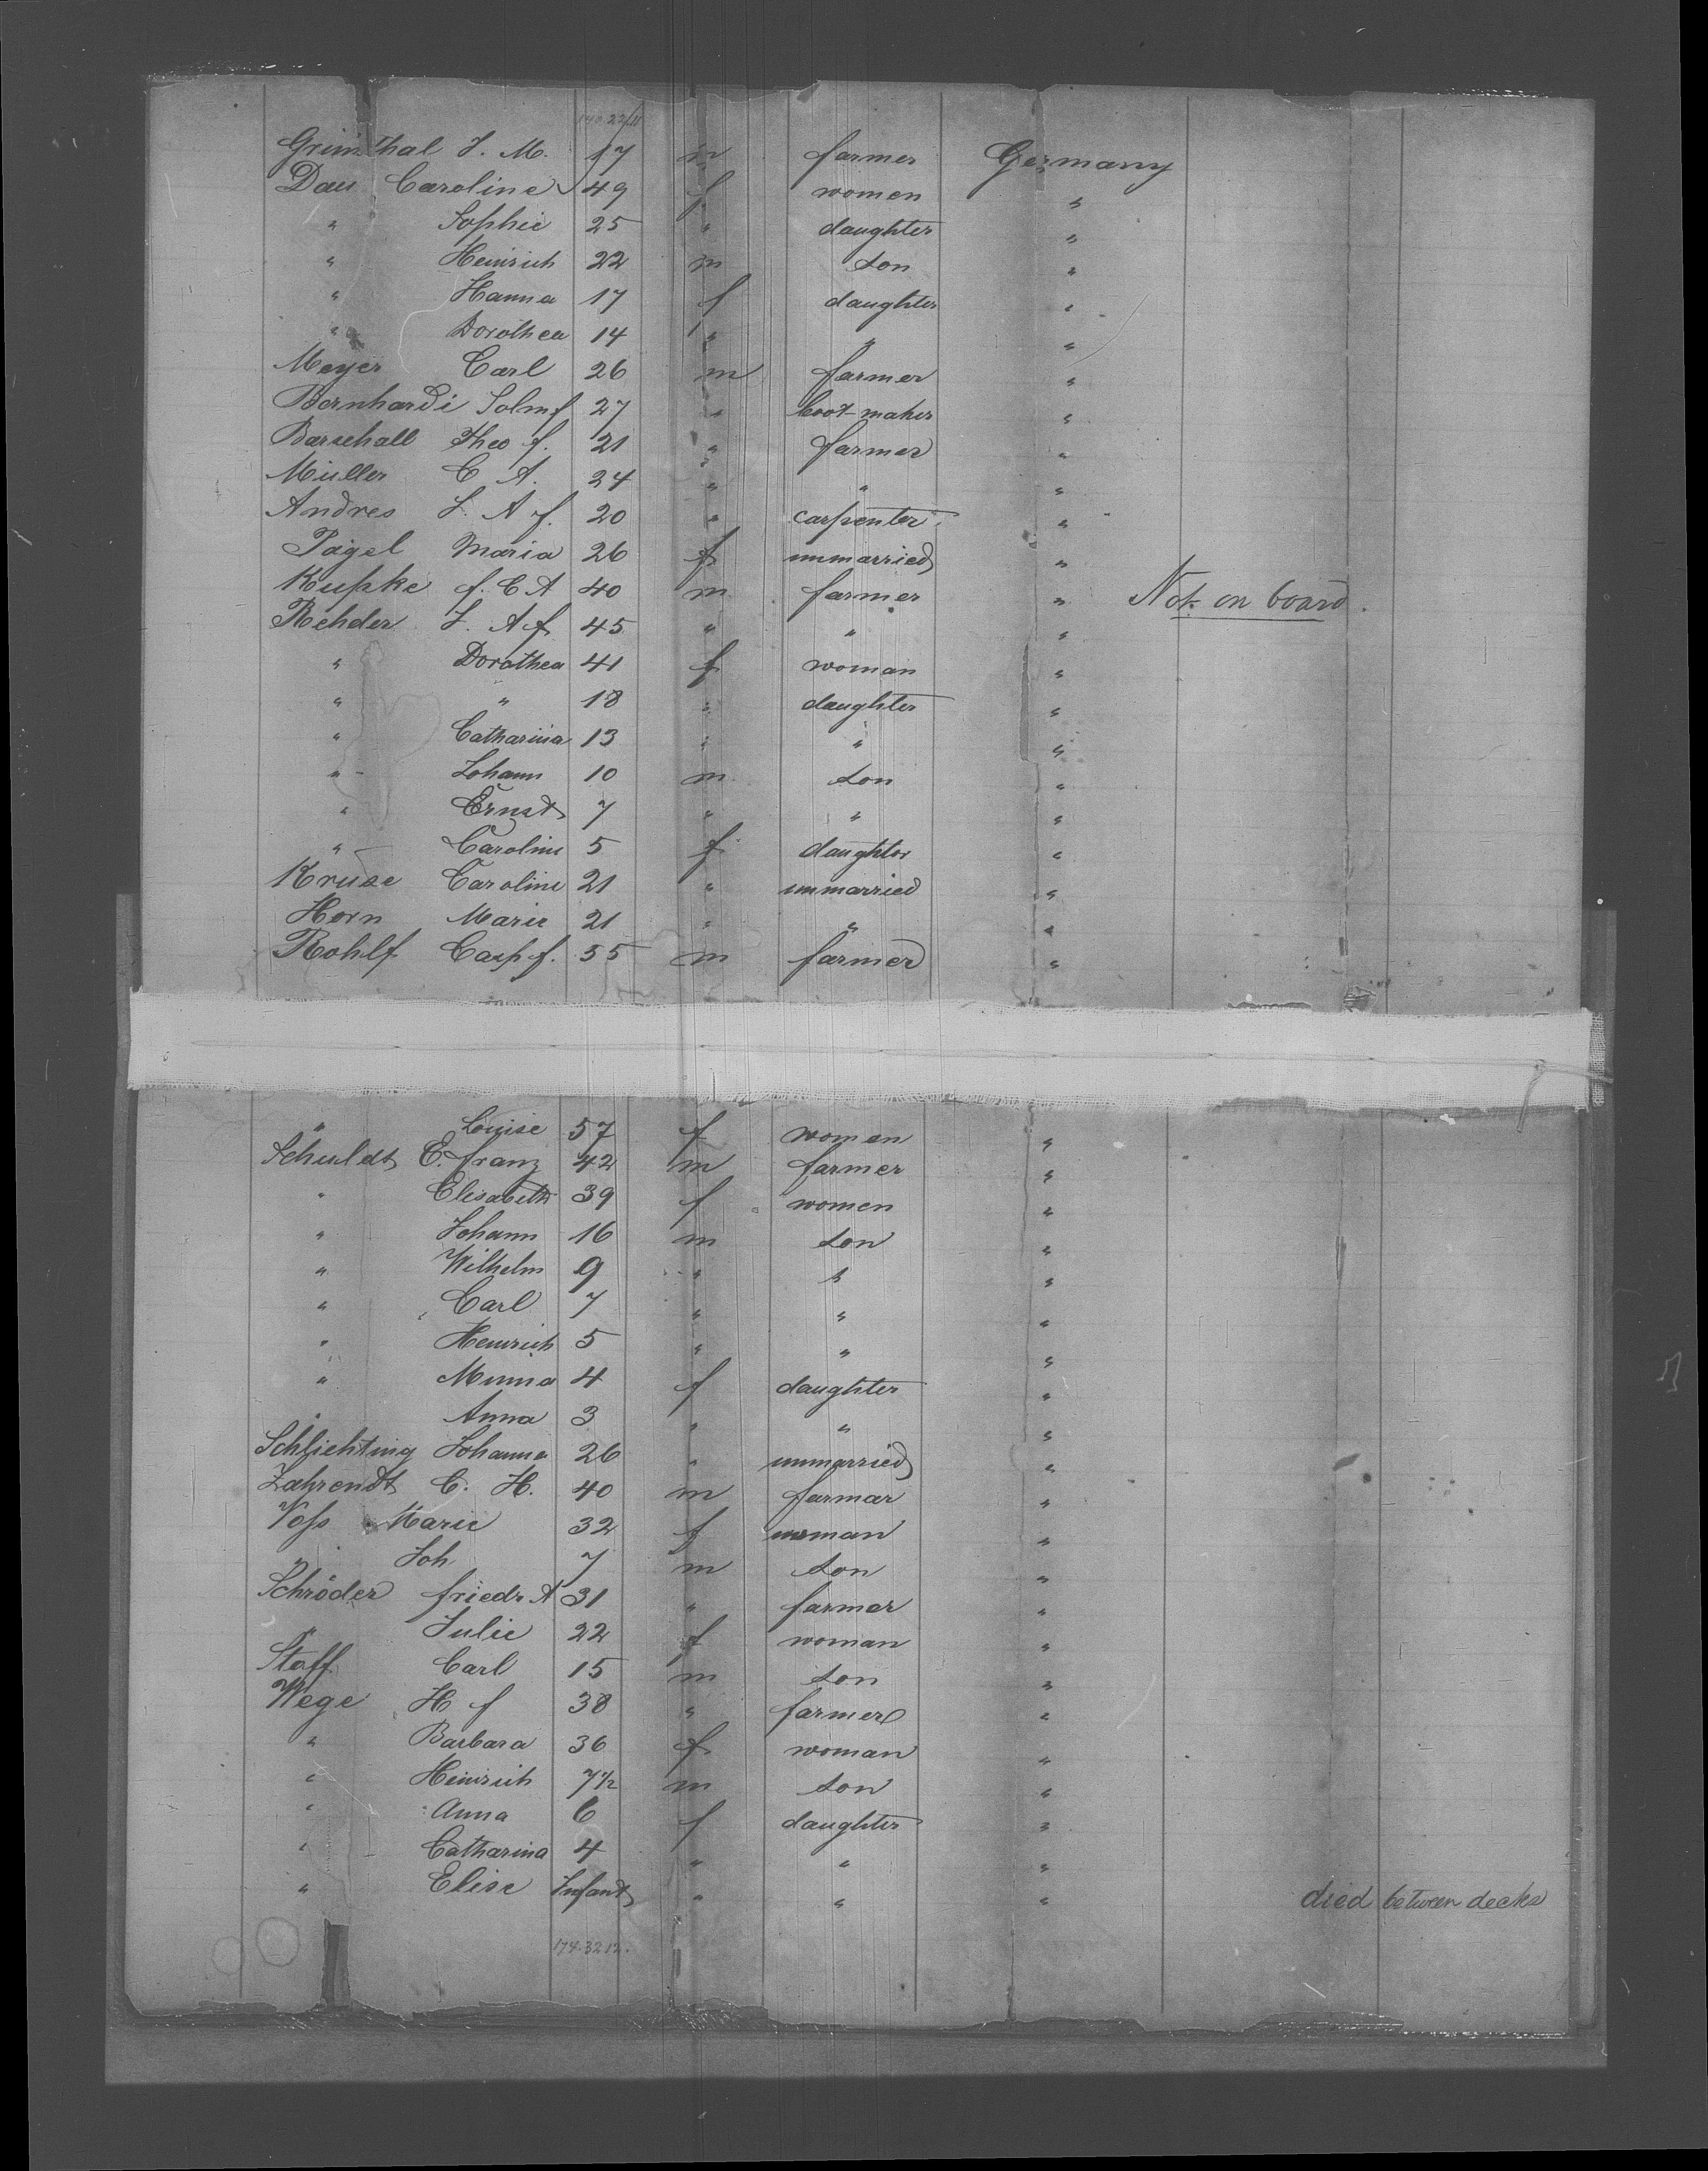 140.22.11
Grünthal J. M. 17 m farmer Germany
Dau Caroline 49 f women "
" Sophie 25 " daughter "
" Heinrich 22 m son "
" Hanna 17 f daughter "
" Dorothea 14 " " "
Meyer Carl 26 m farmer "
Bernhardi 27 " boot maker "
Barschall Theo f. 21 " farmer "
Müller C A. 24 " " "
Andres J. A f. 20 " carpenter "
Pagel Maria 26 f unmarried "
Kupke f. C A 40 m farmer " Not on board.
Rehder J. A f. 45 " " "
" Dorothea 41 f woman "
" " 18 " daughter "
" Catharina 13 " " "
" Johann 10 m son "
" Ernst 7 " " "
" Caroline 5 f daughter "
Kruse Caroline 21 " unmarried "
Horn Marie 21 " " "
Rohlf Casp f. 55 m farmer "
" Louise 57 f women "
Schuldt C. franz 42 m farmer "
" Elisabeth 39 f women "
" Johann 16 m son "
" Wilhelm 9 " " "
" Carl 7 " " "
" Heinrich 5 " " "
" Minna 4 f daughter "
" Anna 3 " " "
Schlichting Johanna 26 " unmarried "
Zahrendt C. H. 40 m farmar "
Voss Marie 32 f woman "
" Joh 7 m son "
Schröder friedr A 31 " farmer "
" Julie 22 f woman "
Staff Carl 15 m son "
Wege H f 38 " farmer "
" Barbara 36 f woman "
" Heinrich 7½ m son "
" Anna 6 f daughter "
" Catharina 4 " " "
" Elise Infant " " " died between decks
174.32 12.